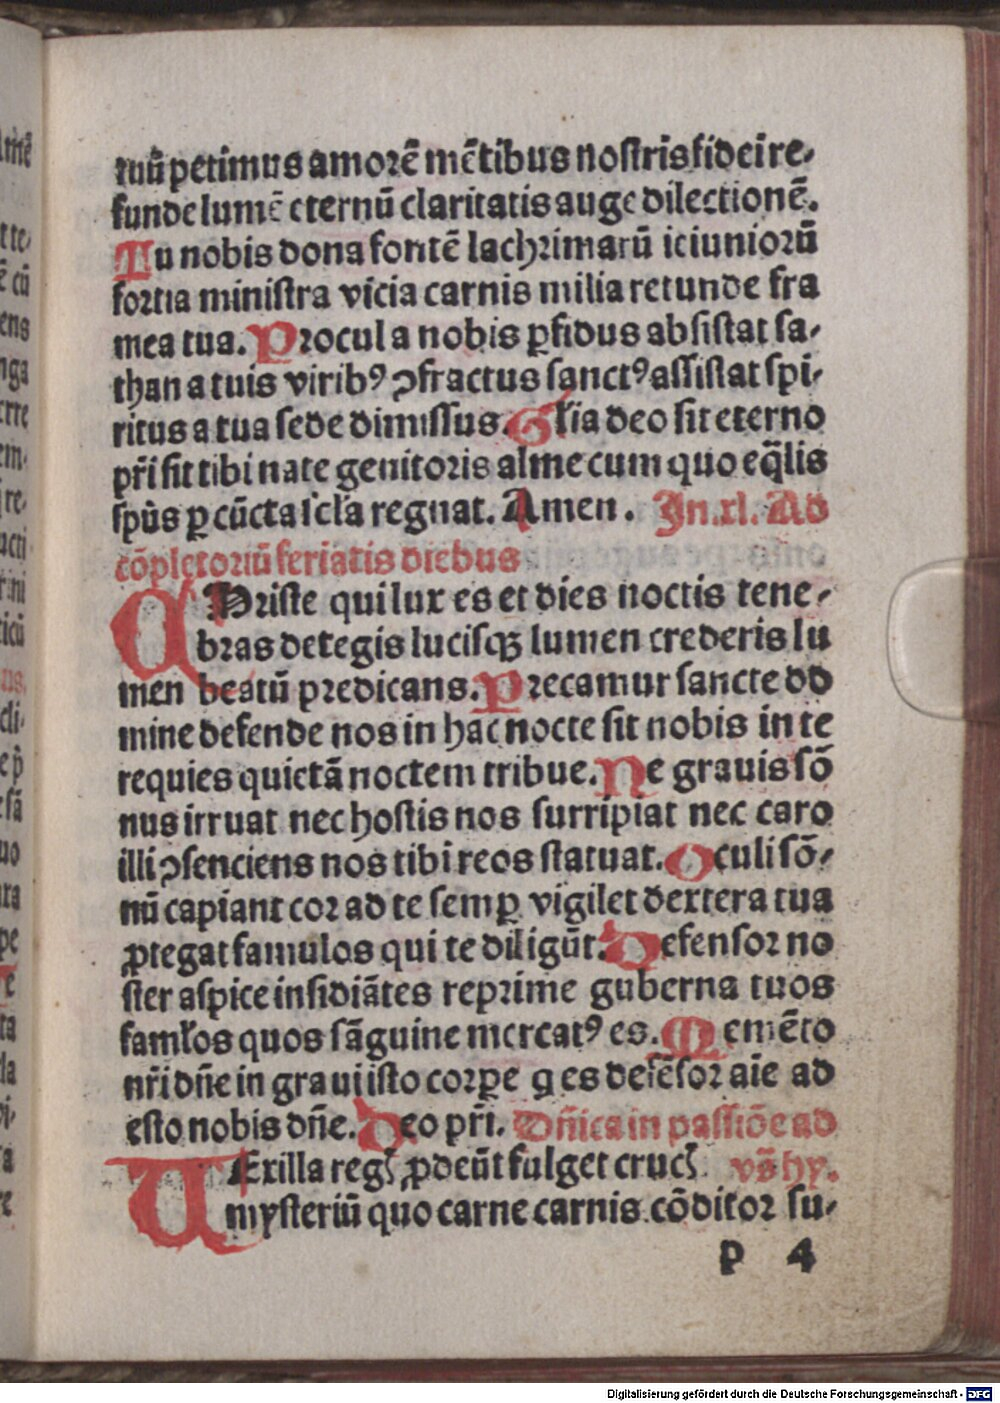 tuū petimus amorē mētibus nostris fidei re-
funde lumē eternū claritatis auge dilectionē.
Tu nobis dona fontē lachrimarū ieiuniorū
fortia ministra vicia carnis milia retunde fra
mea tua. Procul a nobis ꝑfidus absistat sa-
than a tuis viribꝰ ꝯfractus sanctꝰ assistat spi-
ritus a tua sede dimissus. Glīa deo sit eterno
pr̄i sit tibi nate genitoris alme cum quo eq̄lis
sp̄us ꝑ cūcta scl̄a regnat. Amen. In .xl. Ad
cōpletoriū feriatis diebus
Christe qui lux es et dies noctis tene-
bras detegis lucisqꝫ lumen crederis lu
men beatū predicans. Precamur sancte do
mine defende nos in hac nocte sit nobis in te
requies quietā noctem tribue. Ne grauis sō
nus irruat nec hostis nos surripiat nec caro
illi ꝯsenciens nos tibi reos statuat. Oculi sō-
nū capiant cor ad te semꝑ vigilet dextera tua
ꝓtegat famulos qui te diligūt. Defensor no
ster aspice insidiātes reprime guberna tuos
famłos quos sāguine mercatꝰ es. Memēto
nr̄i dn̄e in graui isto corꝑe q es defēsor aīe ad
esto nobis dn̄e. Deo pr̄i. Dn̄ica in passiōe ad
Vexilla regꝭ ꝓdeūt fulget crucꝭ vs̄ hy.
mysteriū quo carne carnis cōditor su-
p 4
Digitalisierung gefördert durch die Deutsche Forschungsgemeinschaft - DFG